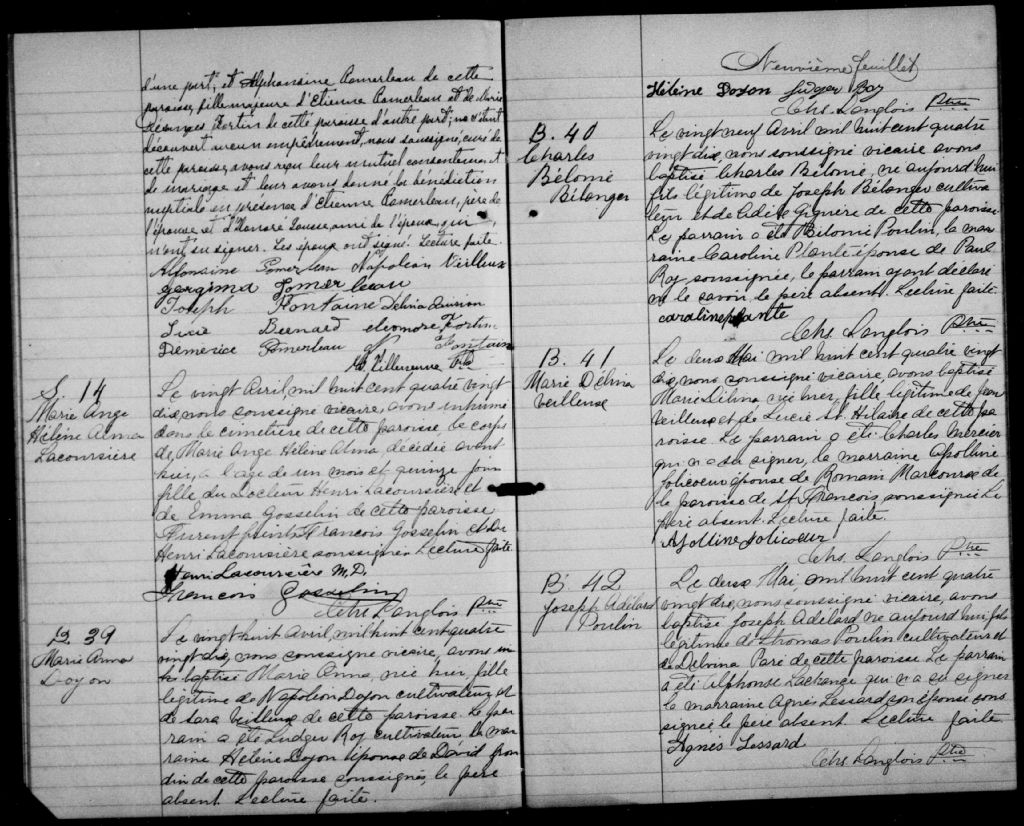 d'une part, et Alphonsine Pomerleau de cette
paroisse, fille majeure d'Etienne Pomerleau et de Marie
Fortin de cette paroisse d'autre part; ne s'étant
découvert aucun empêchement, nous soussigné, curé de
cette paroisse, avons reçu leur mutuel consentement
de mariage et leur avons donné la bénédiction
nuptiale en présence d'Etienne Pomerleau, père de
l'épouse et d'Honoré ami de l'époux, qui
n'ont su signer. Les époux ont signé. Lecture faite.
Alfonsine Pomerleau Napoléon Veilleux
georgina Pomerleau
Joseph Fontaine Délvina
Lucie Bernard eleonore Fortin
Démérise Pomerleau N Fontaine
Villeneuve Ptre
S. 14
Marie Ange
Hélène Alma
Lacoursière
Le vingt Avril, mil huit cent quatre vingt
dix, nous soussigné vicaire, avons inhumé
dans le cimetière de cette paroisse le corps
de Marie Ange Hélène Alma décédée avant
hier, à l'age de un mois et quinze jours
fille du Docteur Henri Lacoursière et
de Emma Gosselin de cette paroisse
Furent présents François Gosselin et Dr
Henri Lacoursière soussignés Lecture faite.
Henri Lacoursière M.D.
François Gosselin
Chs. Langlois Ptre
B. 39
Marie Anna
Doyon
Le vingt huit Avril, mil huit cent quatre
vingt dix, nous soussigné vicaire, avons
baptisé Marie Anna, née hier fille
légitime de Napoléon Doyon cultivateur, et
de Sara Veilleux de cette paroisse. Le par
rain a été Ludger Roy cultivateur la mar
raine Hélène Doyon épouse de David Gron
din de cette paroisse soussignés, le père
absent. Lecture faite.
Neuvième feuillet
Hélène Doyon Ludger Roy
Chs. Langlois Ptre
B. 40
Charles
Bélomie
Bélanger
Le vingt neuf Avril mil huit cent quatre
vingt dix, nous soussigné vicaire avons
baptisé Charles Bélomie, né aujourd'hui
fils légitime de Joseph Bélanger cultiva
teur et de Adèle Giguère de cette paroisse
Le parrain a été Bélomie Poulin, la mar
raine Caroline Plante épouse de Paul
Roy soussignée, le parrain ayant déclaré
ne le savoir le père absent. Lecture faite.
caroline plante
Chs. Langlois Ptre
B. 41
Marie Délina
veilleux
Le deux Mai mil huit cent quatre vingt
dix, nous soussigné vicaire, avons baptisé
Marie Délina née hier, fille légitime de Jean
Veilleux et de Lucie St. Hilaire de cette pa
roisse Le parrain a été Charles Mercier
qui n'a su signer, la marraine Apolline
Jolicoeur épouse de Romain Marcoux de
la paroisse de St François, soussignée Le
père absent. Lecture faite.
Apolline Jolicoeur
Chs. Langlois Ptre
B. 42
Joseph Adélard
Poulin
Le deux Mai mil huit cent quatre
vingt dix, nous soussigné vicaire, avons
baptisé Joseph Adélard né aujourd'hui, fils
légitime de Thomas Poulin cultivateur et
de Delvina Paré de cette paroisse Le parrain
a été Alphonse Lachance qui n'a su signer
la marraine Agnès Lessard son épouse sous
signée, le père absent Lecture faite
Agnès Lessard
Chs. Langlois Ptre